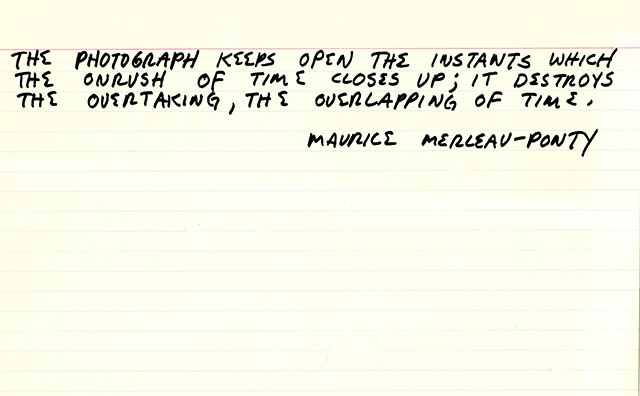 THE PHOTOGRAPH KEEPS OPEN THE INSTANTS WHICH
THE ONRUSH OF TIME CLOSES UP; IT DESTROYS
THE OVERTAKING, THE OVERLAPPING OF TIME.
MAURICE MERLEAU-PONTY